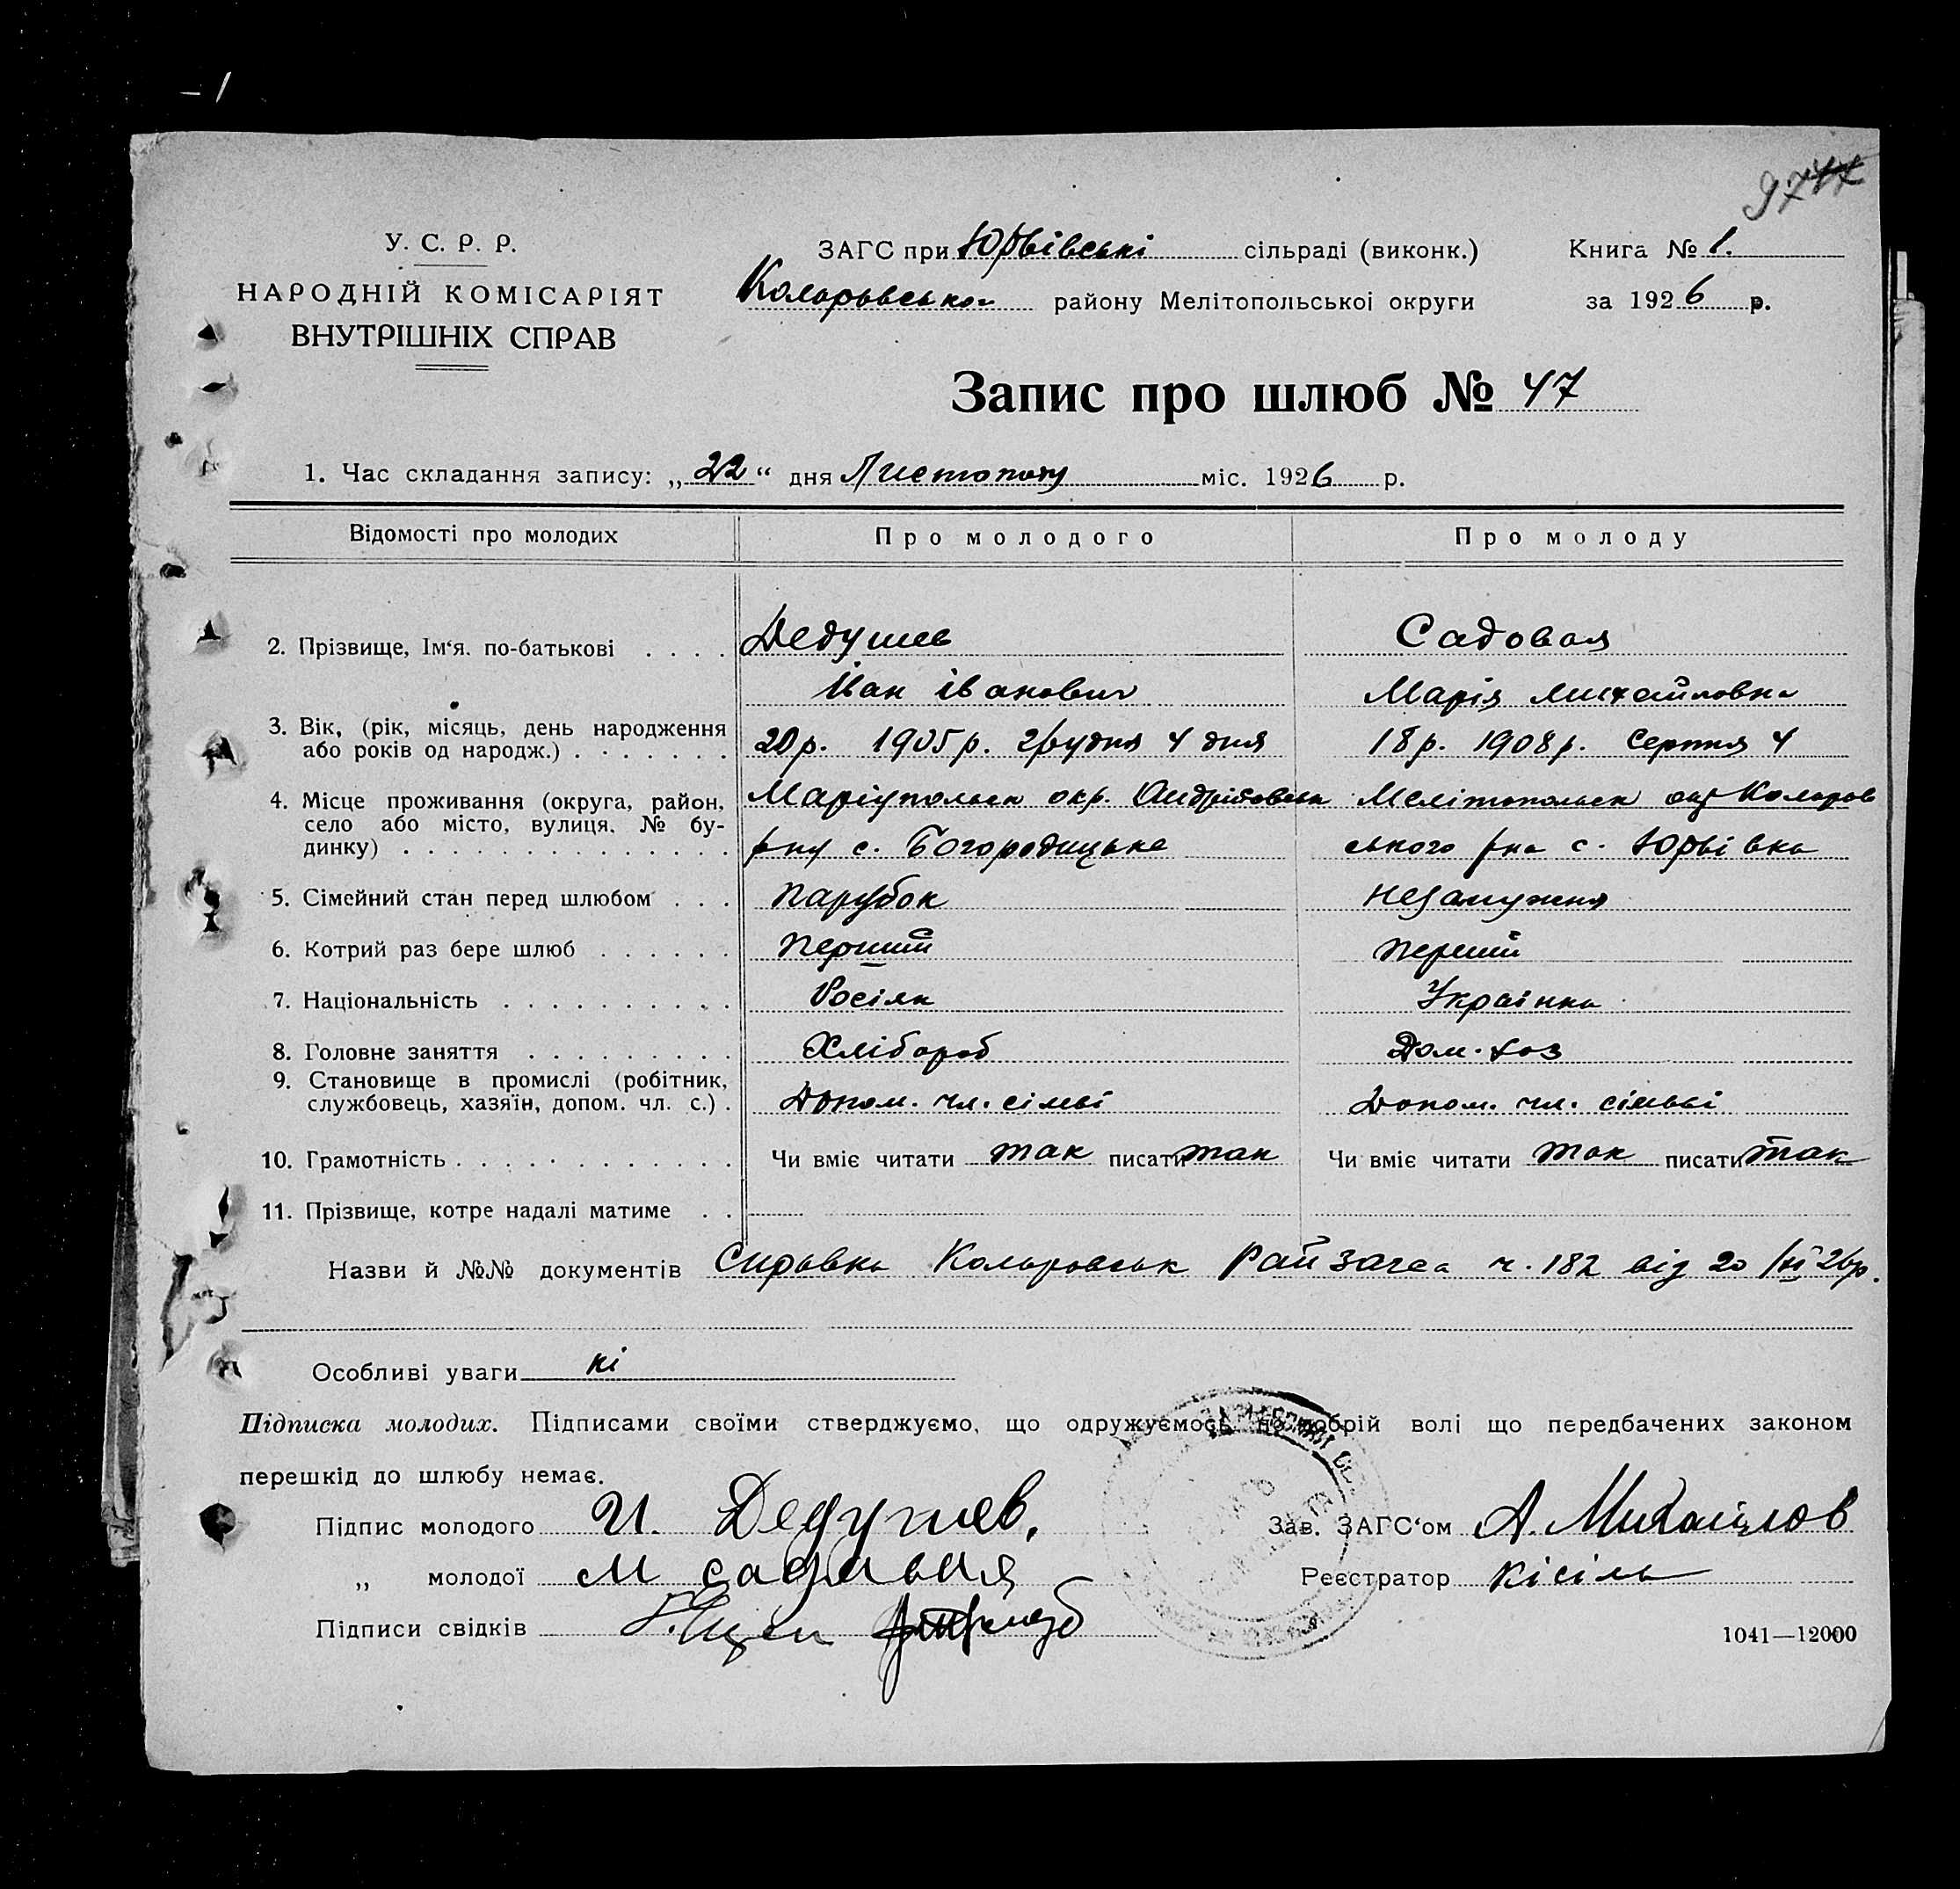 У. С. Р. Р.
НАРОДНІЙ КОМІСАРІЯТ
ВНУТРІШНІХ СПРАВ
ЗАГС при Юрьівські сільраді (виконк.) Книга № 1.
Коларовського району Мелітопольської округи за 1926 р.
Запис про шлюб № 47
1. Час складання запису: „22“ дня Листопаду міс. 1926 р.
Відомості про молодих Про молодого Про молоду
2. Прізвище, Ім‘я. по-батькові . . . . Дедушев Садовая
Іван Іванович Марія Михайловна
3. Вік, (рік, місяць, день народження
або років од народж.) . . . . . . . 20 р. 1905 р. грудня 4 дня 18 р. 1908 р. Серпня 4
4. Місце проживання (округа, район, Маріупольськ окр. Мелітопольск окр Коларов
село або місто, вулиця, № бу-
динку) . . . . . . . . . . . . . . рну с. Богородицьке ського рна с. Юрьівка
5. Сімейний стан перед шлюбом . . . парубок незамужня
6. Котрий раз бере шлюб . . . . . . перший перший
7. Національність . . . . . . . . . . Росіян Українка
8. Головне заняття . . . . . . . . . Хлібороб Дом. хоз
9. Становище в промислі (робітник,
службовець, хазяїн, допом. чл. с.) . Допом. чл. сімьі Допом. чл. сімьві
10. Грамотність . . . . . . . . . . . . Чи вміє читати так писати так Чи вміє читати так писати так
11. Прізвище, котре надалі матиме . .
Назви й №№ документів Справка Коларовськ Райзагса ч. 182 від 20/XI 26р.
Особливі уваги ні
Підписка молодих. Підписами своїми стверджуємо, що одружуємось по добрій волі що передбачених законом
перешкід до шлюбу немає.
Підпис молодого И. Дедушев. Зав. ЗАГС‘ом А. Михайлов
„ молодої М садовая Реєстратор Кісіль
Підписи свідків
1041—12000